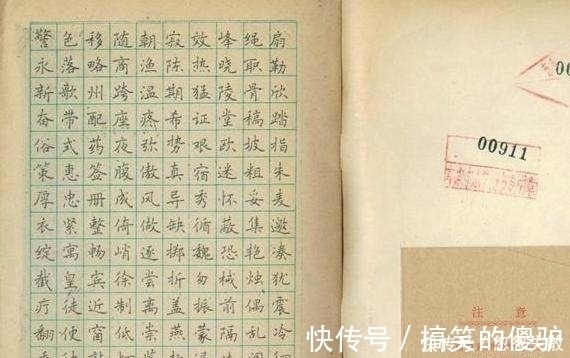 警色移随朝寂效峰绳扇
永落略商渔陈热晓职勤
新歌州跨温期猛陵骨欣
奋带配座疼希证堂稿踏
俗式药夜弥势艰欧披指
策惠签腹傲真宿迷粗朱
厚忠册成风导秀怀妥麦
衣紧整倚做缺循蔽集邀
绽寓畅峭逐掷魏恐艳凑
截皇宾徐尝折勿械烛犹
疗徒近制离盖振前偶震
翻便窗低崇燕蒙隔乱冷
00911
注意
快传号/搞笑的傻驴